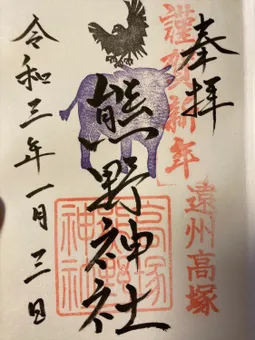 奉拝
謹賀新年
遠州高塚
熊野神社
高塚
熊野
神社
令和三年一月三日